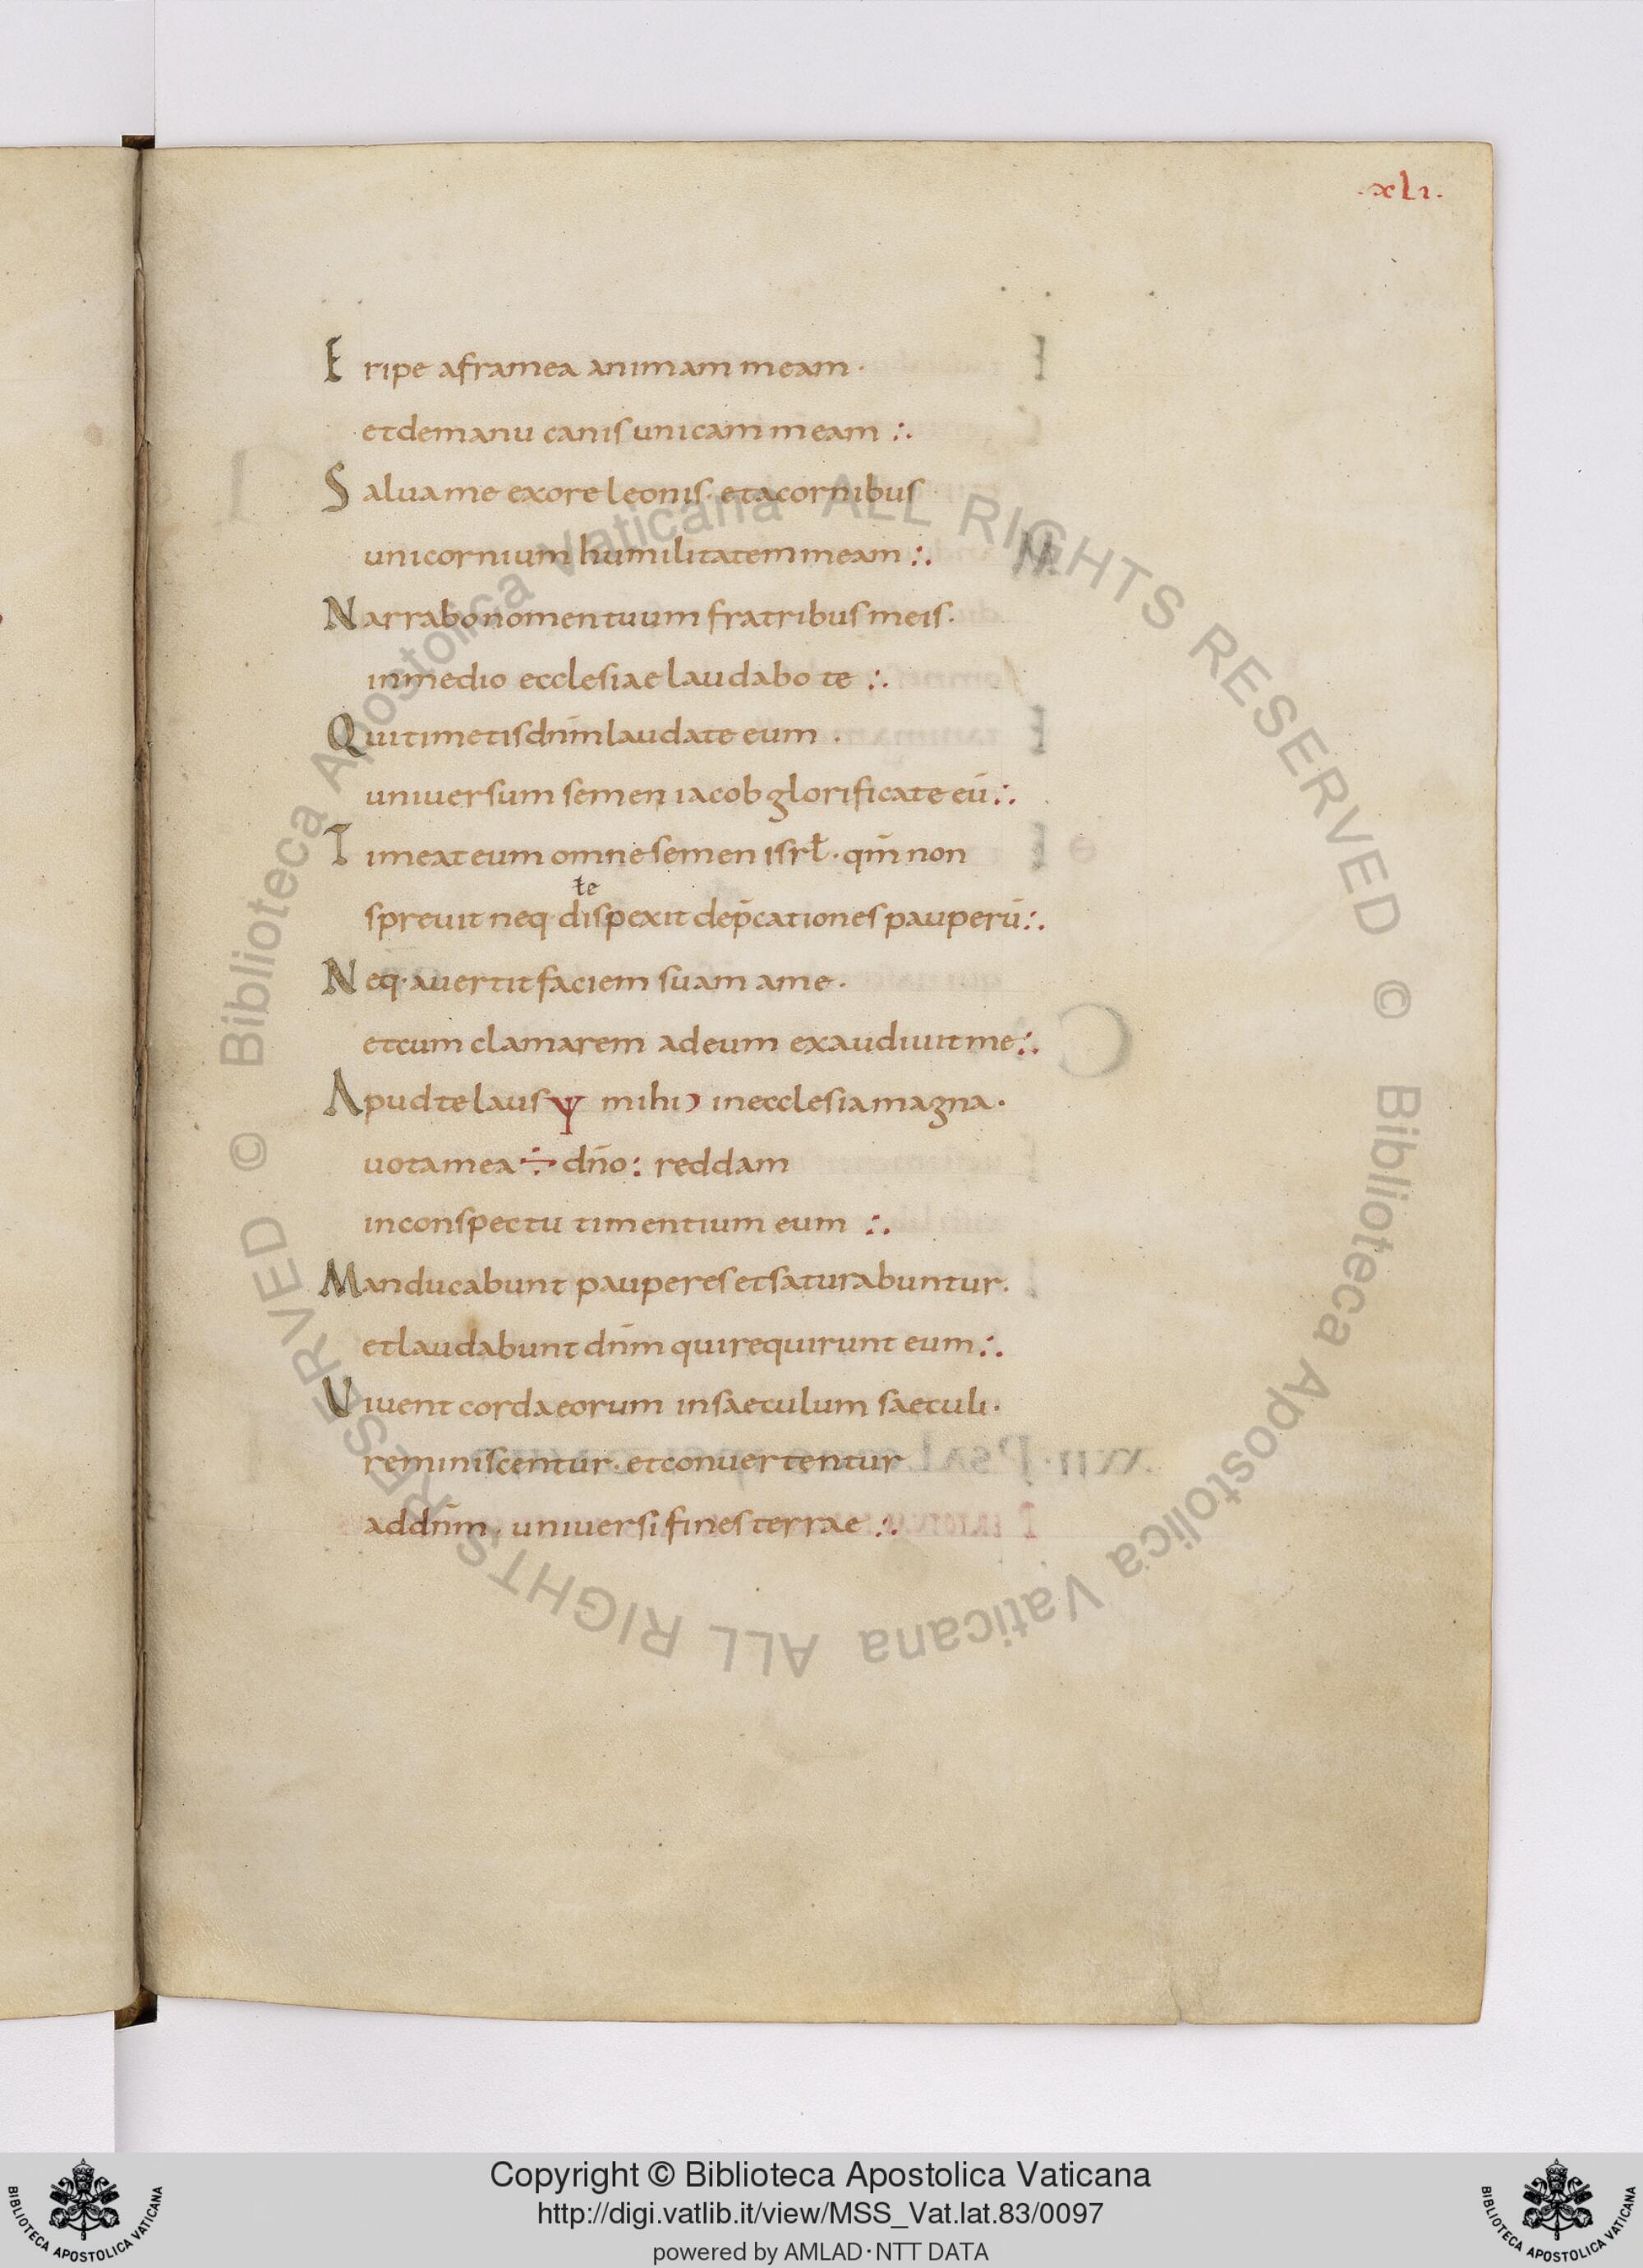 ·xLı·
Eripe aframea animam meam·
etdemanu canis unicam meam :.
Salua me exore leonis· etacornibus
unicornium humilitatem meam :.
Narrabo nomen tuum fratribus meis·
inmedio ecclesiae laudabo te :.
Qui timetis dn̄m laudate eum ·
uniuersum semen iacob glorificate eū :.
Timeat eum omne semen isrł· qm̄ non
łe
spreuit neq· dispexit dep̄cationes pauperū :.
Neq· auertit faciem suam ame·
etcum clamarem adeum exaudiuit me :.
Apud te laus ψ mihi ɔ inecclesia magna·
uota mea ÷ dn̄o : reddam
inconspectu timentium eum :.
Manducabunt pauperes etsaturabuntur·
etlaudabunt dn̄m qui requirunt eum :.
Uiuent corda eorum insaeculum saeculi·
reminiscentur· etconuertentur
addn̄m· uniuersi fines terrae :.
© Biblioteca Apostolica Vaticana ALL RIGHTS RESERVED © Biblioteca Apostolica Vaticana ALL RIGHTS RESERVED
Copyright © Biblioteca Apostolica Vaticana
http://digi.vatlib.it/view/MSS_Vat.lat.83/0097
powered by AMLAD·NTT DATA
BIBLIOTECA APOSTOLICA VATICANA
BIBLIOTECA APOSTOLICA VATICANA